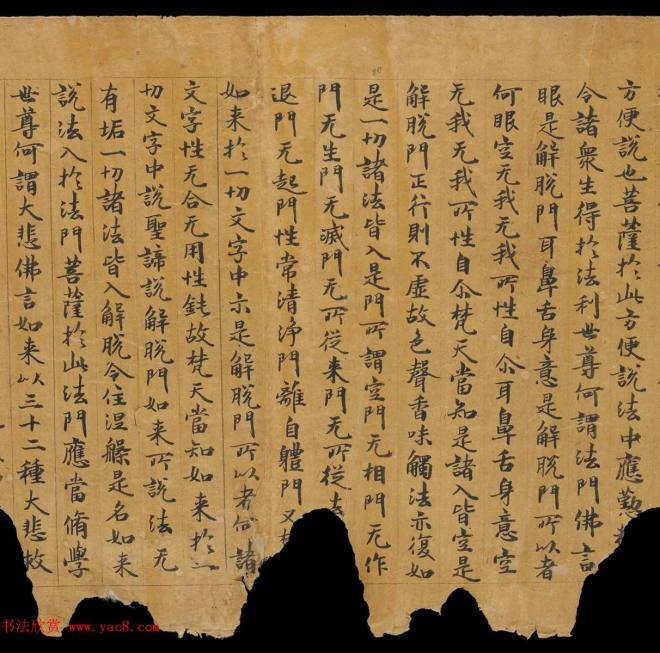 方便說也菩薩於此方便說法中應勤
令諸衆生得於法利世尊何謂法門佛言
眼是解脫門耳鼻舌身意是解脫門所以者
何眼空无我无我所性自尒耳鼻舌身意空
无我无我所性自尒梵天當知是諸入皆空是
解脫門正行則不虛故色聲香味觸法亦復如
是一切諸法皆入是門所謂空門无相門无作
門无生門无滅門无所從来門无所從去
退門无起門性常清淨門離自軆門又
如来於一切文字中示是解脫門所以者何諸
文字性无合无用性鈍故梵天當知如来於一
切文字中說聖諦說解脫門如来所說法无
有垢一切諸法皆入解脫令住涅槃是名如来
說法入於法門菩薩於此法門應當脩學
世尊何謂大悲佛言如来以三十二種大悲救
书法欣赏 www.yac8.com